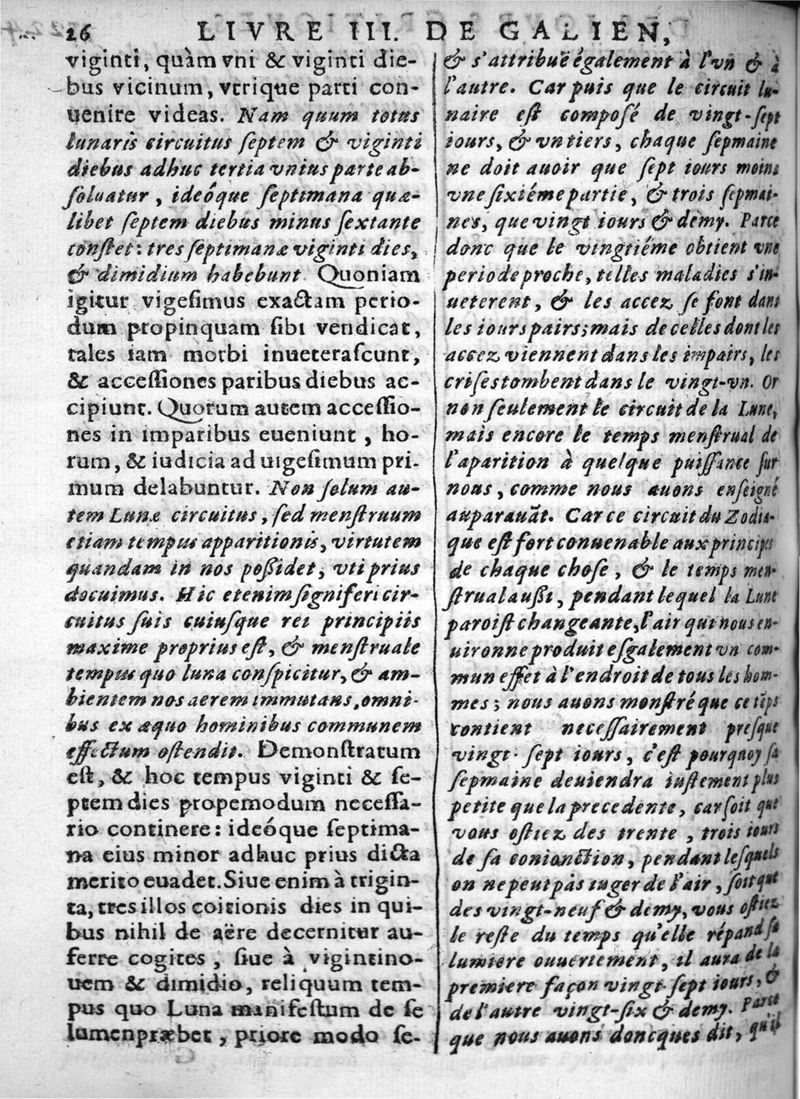 26 LIVRE III. DE GALIEN,
viginti, quàm vni & viginti die-
bus vicinum, vtrique parti con-
uenire videas. Nam quum totus
lunaris circuitus ſeptem & viginti
diebus adhuc tertia vnius parte ab-
ſoluatur, ideóque ſeptimana quæ-
libet ſeptem diebus minus ſextante
conſtet: tres ſeptimanæ viginti dies,
& dimidium habebunt. Quoniam
igitur vigeſimus exactam perio-
dum propinquam ſibi vendicat,
tales iam morbi inueteraſcunt,
& acceſſiones paribus diebus ac-
cipiunt. Quorum autem acceſſio-
nes in imparibus eueniunt, ho-
rum, & iudicia ad uigeſimum pri-
mum delabuntur. Non ſolum au-
tem Lunæ circuitus, ſed menſtruum
etiam tempus apparitionis, virtutem
quandam in nos poſſidet, vti prius
docuimus. Hic etenim ſigniferi cir-
cuitus ſuis cuiuſque rei principiis
maxime proprius eſt, & menſtruale
tempus quo luna conſpicitur, & am-
bientem nos aerem immutans, omni-
bus ex æquo hominibus communem
effectum oſtendit. Demonſtratum
eſt, & hoc tempus viginti & ſe-
ptem dies propemodum neceſſa-
rio continere: ideóque ſeptima-
na eius minor adhuc prius dicta
merito euadet. Siue enim à trigin-
ta, tres illos coitionis dies in qui-
bus nihil de aëre decernitur au-
ferre cogites, ſiue à vigintino-
uem & dimidio, reliquum tem-
pus quo Luna manifeſtum de ſe
lumen præbet, priore modo ſe-
& s'attribuë également à l'vn & à
l'autre. Car puis que le circuit lu-
naire eſt compoſé de vingt-ſept
iours, & vn tiers, chaque ſepmaine
ne doit auoir que ſept iours moins
vne ſixiéme partie, & trois ſepmai-
nes, que vingt iours & demy. Parce
donc que le vingtiéme obtient vne
periode proche, telles maladies s'in-
ueterent, & les accez ſe font dans
les iours pairs; mais de celles dont les
accez viennent dans les impairs, les
criſes tombent dans le vingt-vn. Or
non ſeulement le circuit de la Lune,
mais encore le temps menſtrual de
l'aparition à quelque puiſſance ſur
nous, comme nous auons enſeigné
auparauãt. Car ce circuit du Zodia-
que eſt fort conuenable aux principes
de chaque choſe, & le temps men-
ſtrual auſſi, pendant lequel la Lune
paroiſt changeante, l'air qui nous en-
uironne produit eſgalement vn com-
mun effet à l'endroit de tous les hom-
mes; nous auons monſtré que ce tẽps
contient neceſſairement preſque
vingt-ſept iours, c'eſt pourquoy ſa
ſepmaine deuiendra iuſtement plus
petite que la precedente, car ſoit que
vous oſtiez des trente, trois iours
de ſa conionction, pendant leſquels
on ne peut pàs iuger de l'air, ſoit que
des vingt-neuf & demy, vous oſtiez
le reſte du temps qu'elle répand ſa
lumiere ouuertement, il aura de la
premiere façon vingt-ſept iours, &
de l'autre vingt-ſix & demy. Parce
que nous auons doncques dit, qu'il